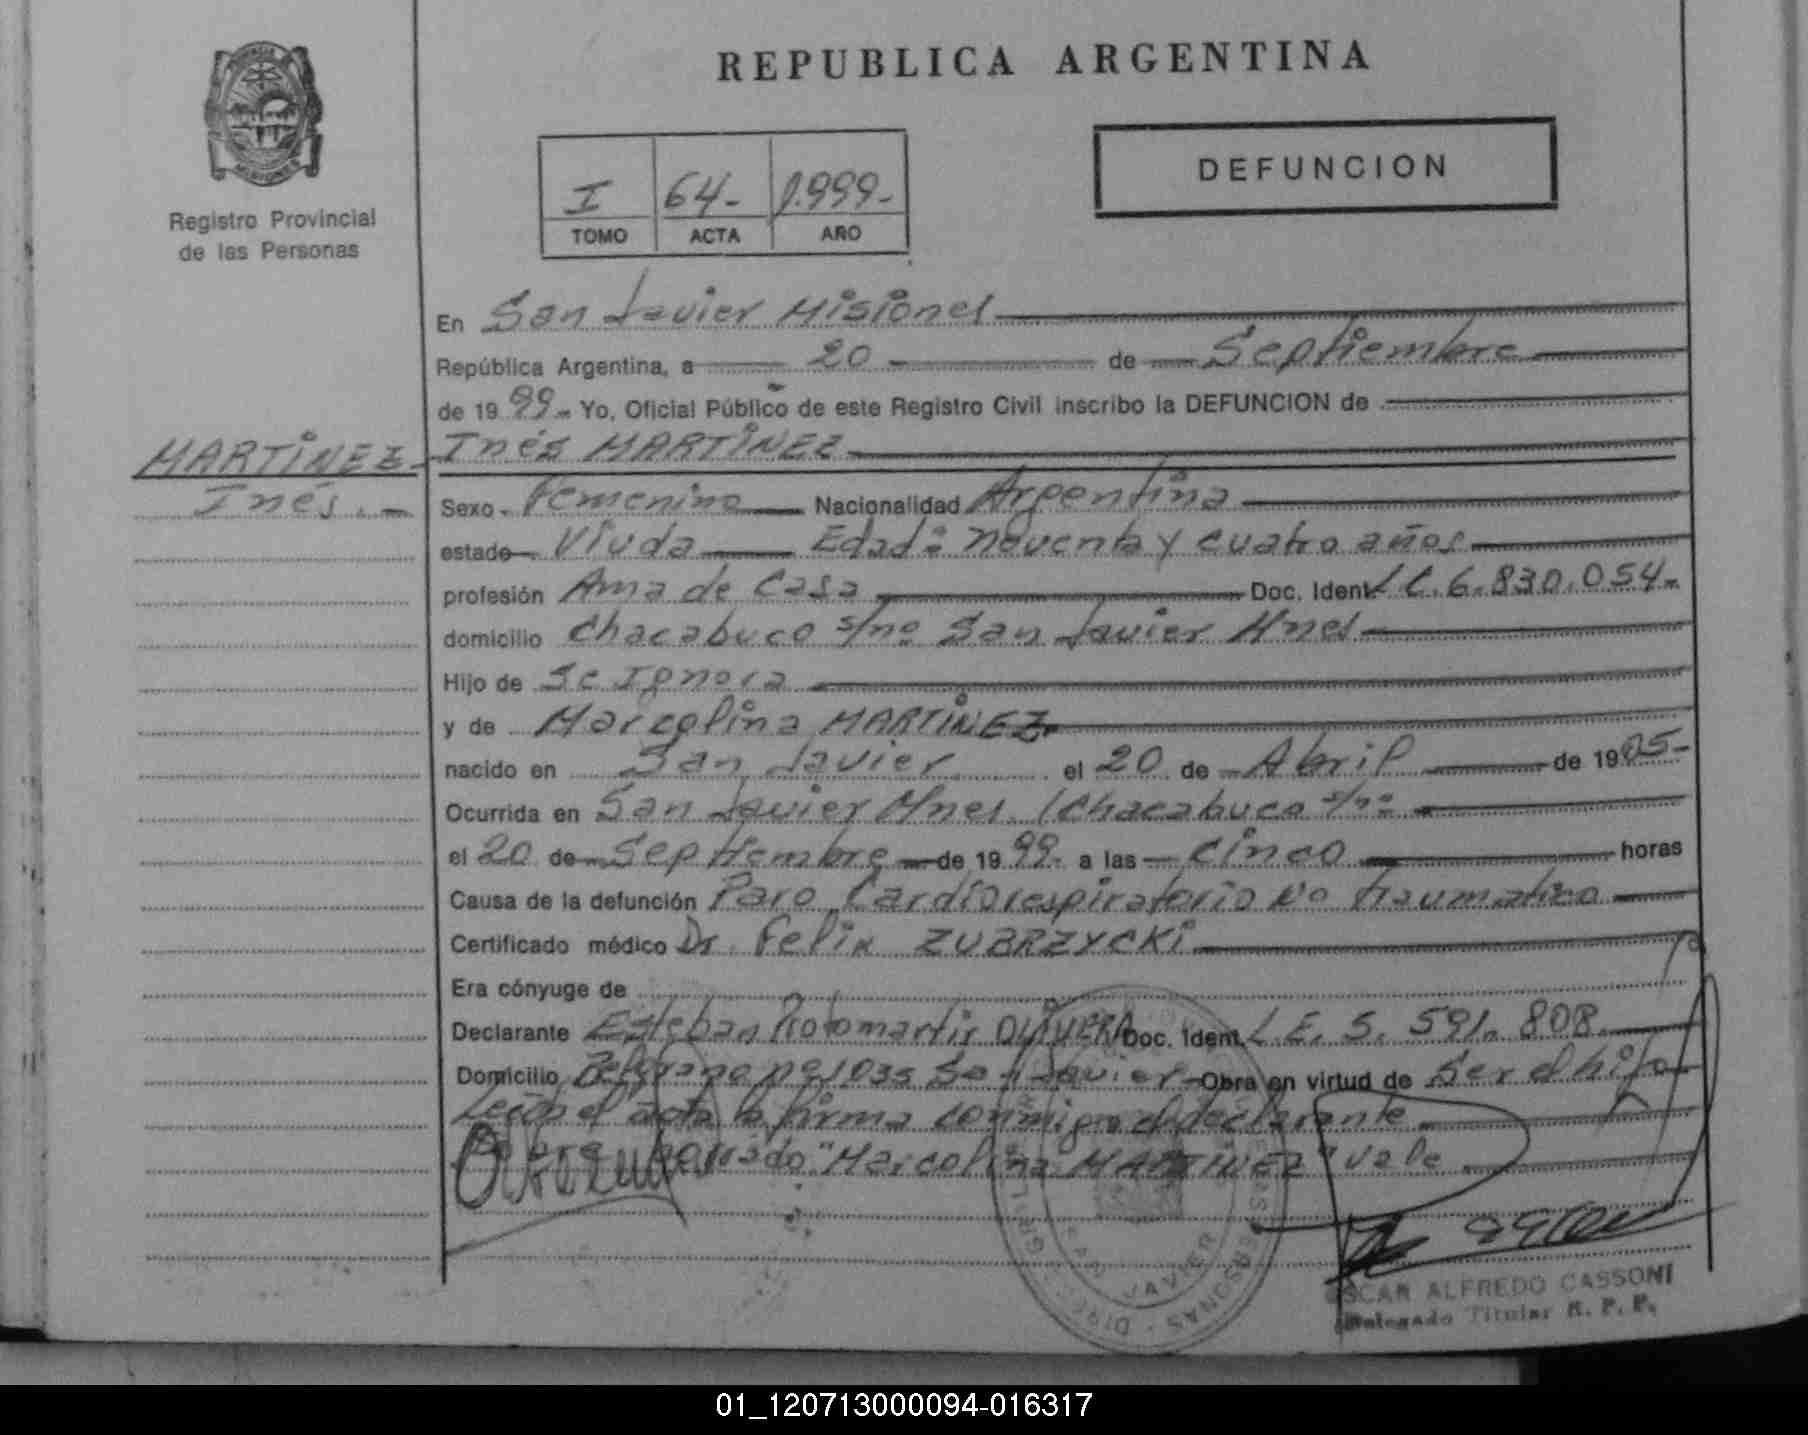 REPUBLICA ARGENTINA
PROVINCIA
MISIONES
Registro Provincial
de las Personas
DEFUNCION
I 64- 1.999-
TOMO ACTA AÑO
En San Javier Misiones
República Argentina, a 20 de Septiembre
de 1999- Yo, Oficial Público de este Registro Civil inscribo la DEFUNCION de
MARTINEZ- Inés MARTINEZ
Inés.- Sexo Femenino Nacionalidad Argentina
estado Viuda Edad: Noventa y cuatro años
profesión Ama de Casa Doc. Ident. L C. 6.830.054-
domicilio Chacabuco s/nº San Javier Mnes
Hijo de Se Ignora
y de Marcolina MARTINEZ
nacido en San Javier el 20 de Abril de 1905-
Ocurrida en San Javier Mnes /Chacabuco s/nº
el 20 de Septiembre de 1999- a las cinco horas
Causa de la defunción Paro Cardiorespiratorio No traumatico
Certificado médico Dr. Felix ZUBRZYCKI
Era cónyuge de
Declarante Esteban Protomartir OLIVERA Doc. Ident. L.E. 5.591.808
Domicilio Belgrano nº 1035 San Javier Obra en virtud de Ser el hijo
Leida el acta la firma conmigo el declarante
"Marcolina MARTINEZ" Vale
SAN JAVIER
OSCAR ALFREDO CASSONI
Delegado Titular R. P. P.
01_120713000094-016317